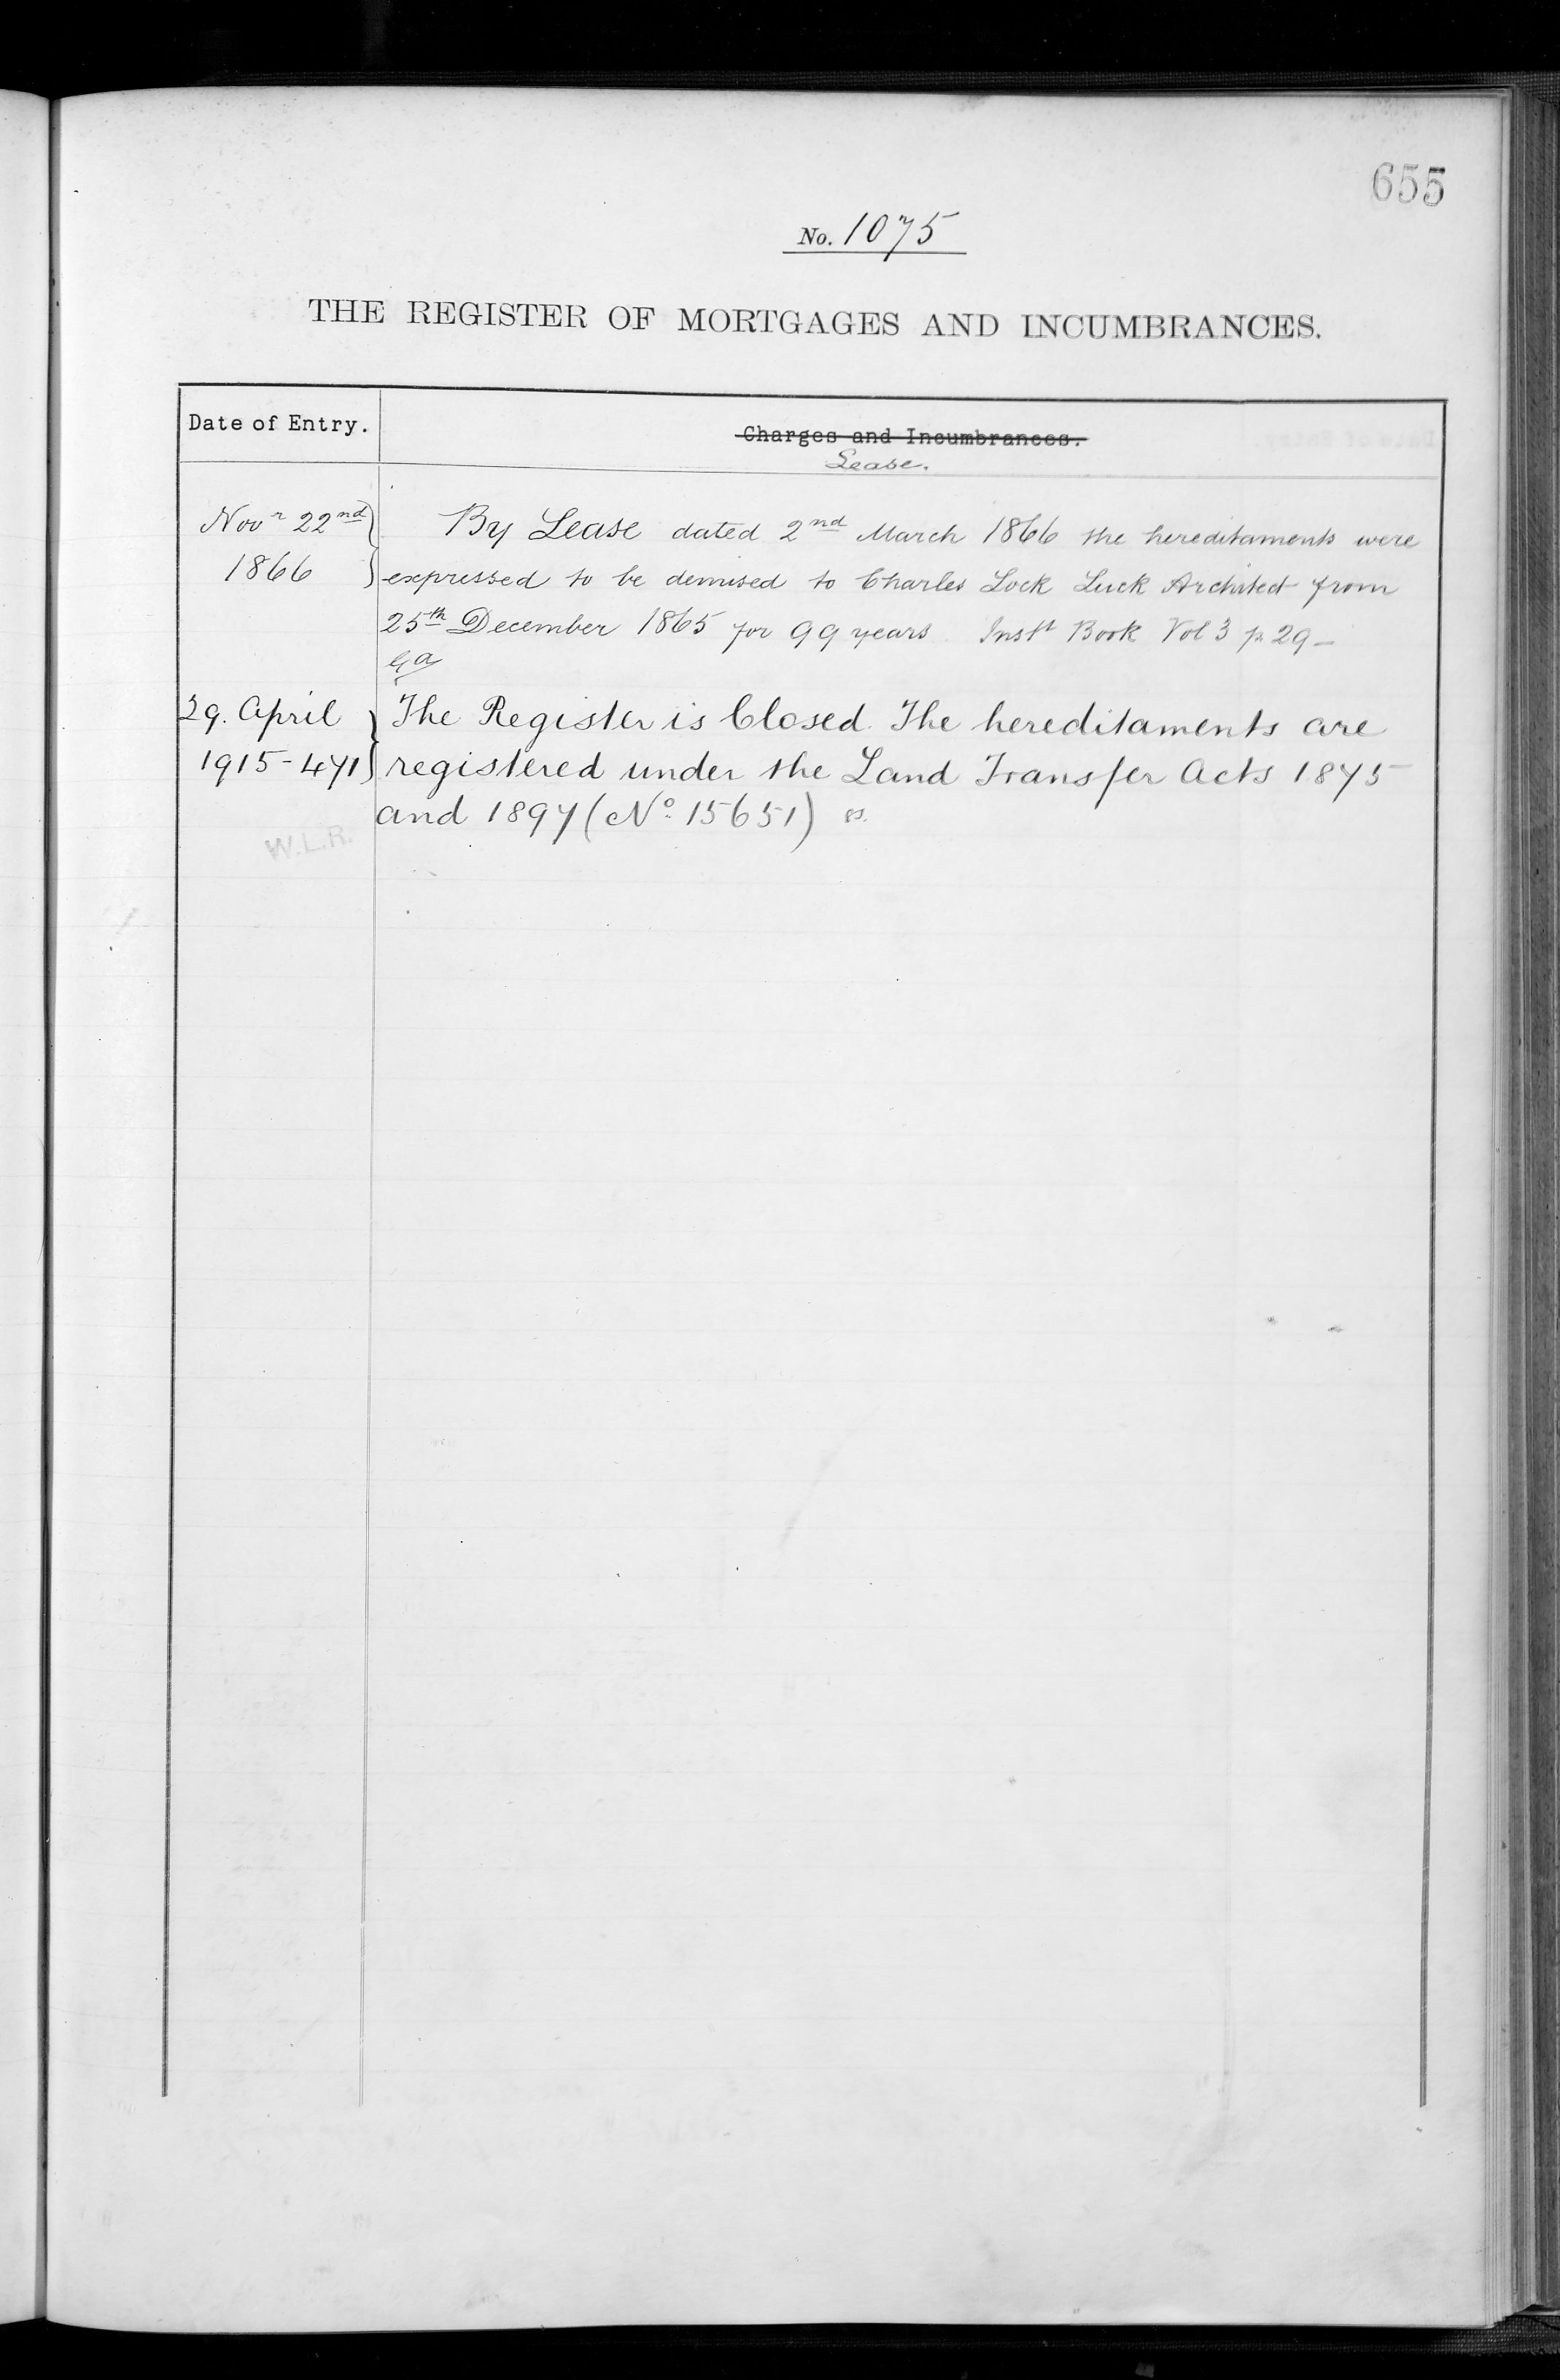 655
No. 1075
THE REGISTER OF MORTGAGES AND INCUMBRANCES.
Date of Entry.
Charges and Incumbrances.
Lease.
Novr 22nd
1866
By Lease dated 2nd March 1866 the hereditaments were
expressed to be demised to Charles Lock Luck Architect from
25th December 1865 for 99 years Instt Book Vol 3 p. 29 -
29. April
1915-471
The Register is Closed. The hereditaments are
registered under the Land Transfer Acts 1875
and 1897 (No. 15651)
W.L.R.